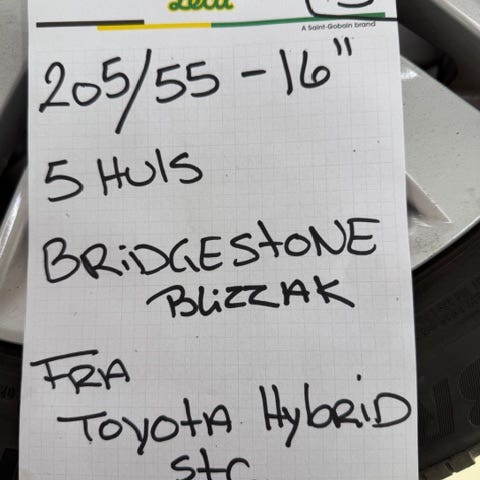 Leca
A Saint-Gobain brand
205/55 - 16"
5 HULS
BRIDGESTONE
BLIZZAK
FRA
TOYOTA HYBRID
STC